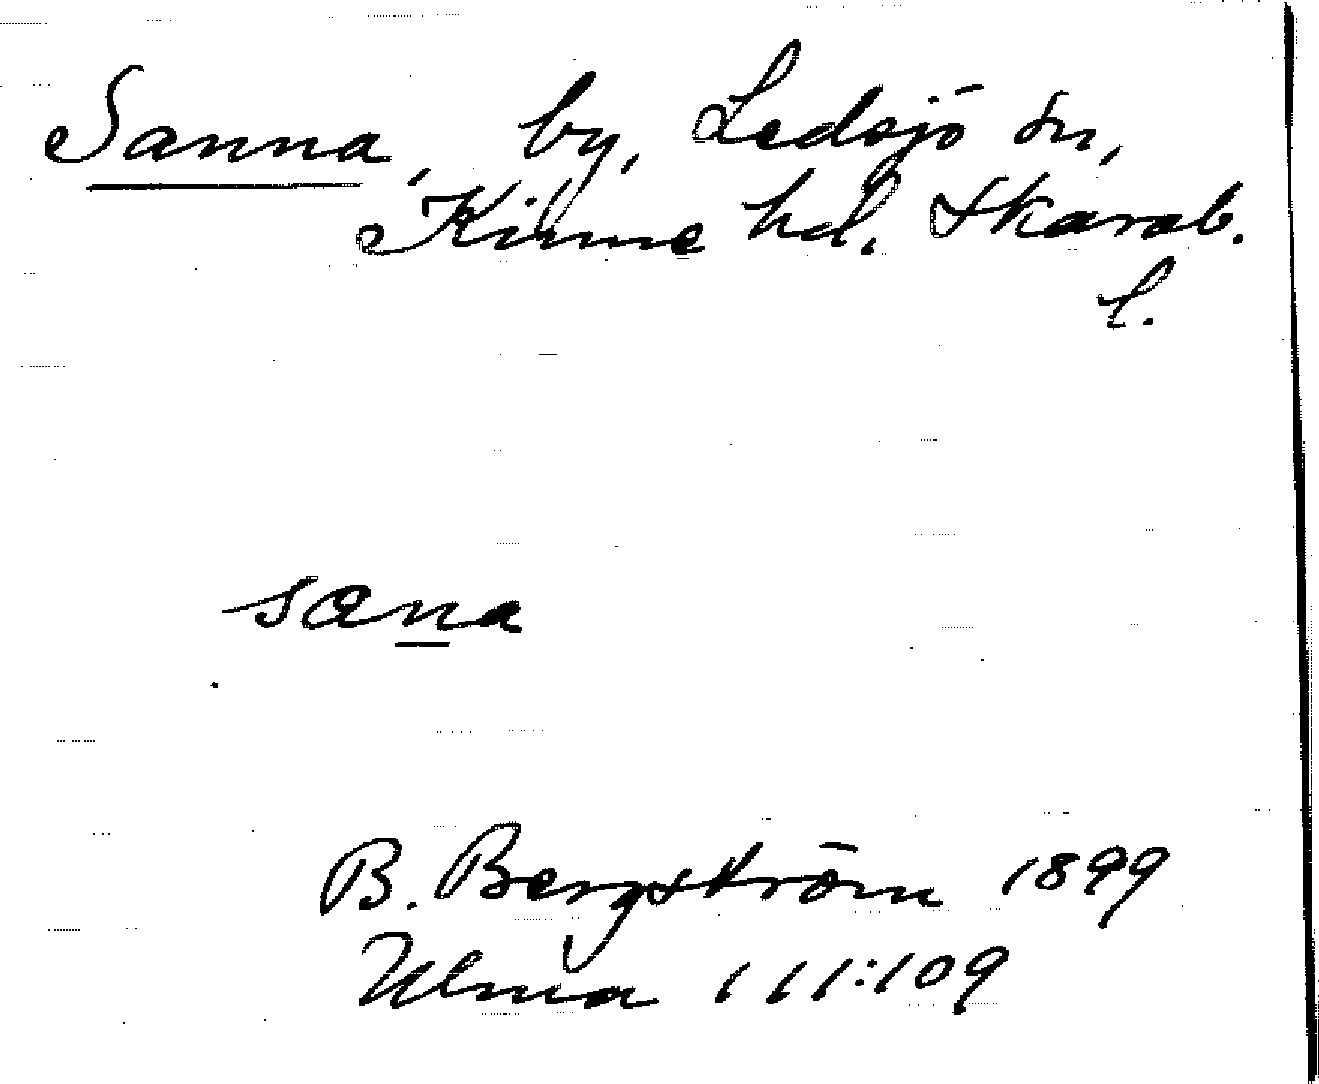 Sanna, by, Ledsjö sn,
Kinne hd. Skarab.
l.
sana
B. Bergström 1899
Ulma 111:109